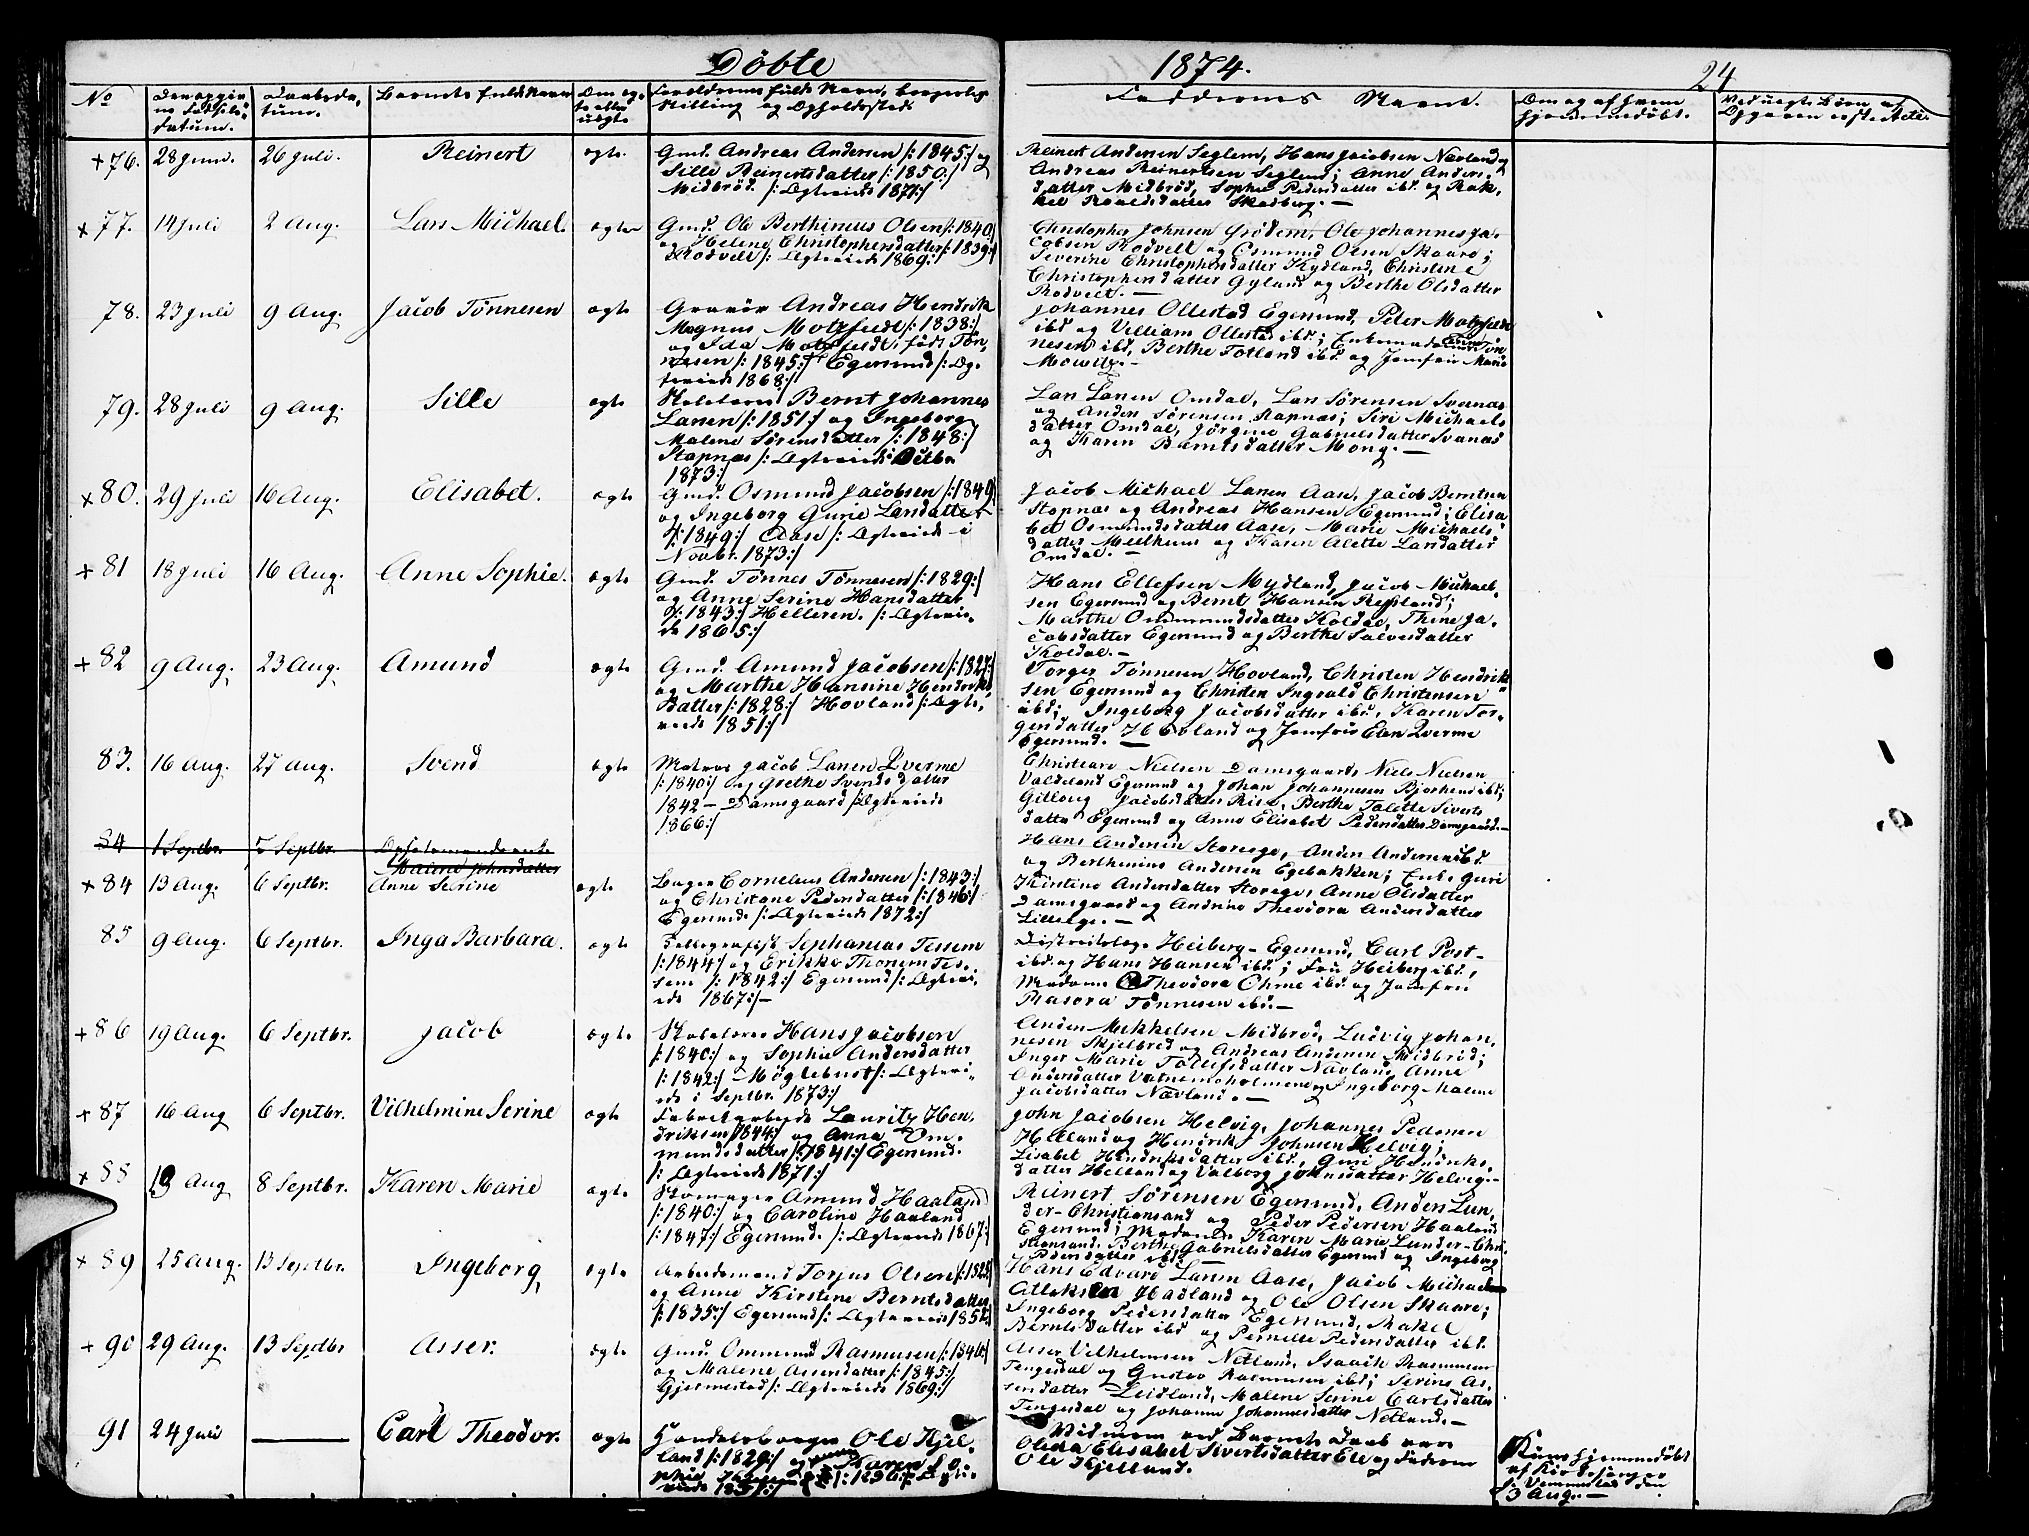 Døbte
1874.
24
No
Daabsda-
tum.
Barnets fulde Navn
Om æg-
te eller
uægte
Forældrenes fulde Navn, borgerlige
Stilling og Opholdssted
Faddernes Navne.
Om og af hvem
hjemmedøbt.
+76. 28 Juni. 26 Juli. Reinert ægte.
Gmd. Andreas Andersen /:1845:/ og
Sille Reinertsdatter /:1850:/
Midbrød. /:Ægteviede 1871:/
Reinert Andersen Seglem, Hans Jacobsen Nævland og
Andreas Reinertsen Seglem; Anne Anders-
datter Midbrød, Sophie Pedersdatter ibd. og Rak-
kel Roaldsdatter Skadberg. —
+77. 14 Juli 2 Aug. Lars Michael. ægte
Gmd. Ole Berthinius Olsen /:1840:/
og Helene Christophersdatter /:1839:/
Rodvelt /:Ægteviede 1869:/
Christopher Johnsen Grødem, Ole Johannes Ja-
cobsen Rodvelt og Osmund Olsen Skaare;
Severine Christophersdatter Kydland, Christene
Christophersdatter Gyland og Berthe Olsdatter
Rodvelt. —
78. 23 Juli 9 Aug. Jacob Tønnesen ægte
Gravør Andreas Hendrik
Magnus Motzfeldt /:1838:/
og Ida Motzfeldt, født Tøn-
nesen /:1845:/ Egersund /:Æg-
teviede 1868:/
Johannes Ollestad Egersund, Peter Motzfeldt
ibd og Villiam Ollestad ibd.; Enkemadame Tøn-
nesen ibd, Berthe Totland ibd. og Jomfru Marie
Mowitz. —
79. 28 Juli 9 Aug. Sille ægte
Skolelærer Bernt Johannes
Larsen /:1851:/ og Ingeborg
Malene Sørensdatter /:1848:/
Stapnæs /:Ægteviede Octbr
1873:/
Lars Larsen Omdal, Lars Sørensen Svanæs
og Anders Sørensen Stapnæs; Siri Michaels-
datter Omdal, Jørgine Gabrielsdatter Svanæs
og Karen Berntsdatter Mong. —
+80. 29 Juli 16 Aug. Elisabet. ægte
Gmd. Osmund Jacobsen /:1849
og Ingeborg Gurie Larsdatter
/:1849:/ Aase /:Ægteviede i
Novbr. 1873:/
Jacob Michael Larsen Aase, Jacob Berntsen
Stapnæs og Andreas Hansen Egersund; Elisa-
bet Osmundsdatter Aase, Marie Michaels-
datter Mellhuus og Karen Alette Larsdatter
Omdal. —
+81 18 Juli 16 Aug. Anne Sophie. ægte
Gmd. Tønnes Tønnesen /:1829:/
og Anne Serine Hansdatter
/:1843:/ Helleren. /:Ægtevie-
de 1865:/
Hans Ellefsen Mydland, Jacob Michael-
sen Egersund og Bernt Hansen Refsland;
Marthe Osmundsdatter Koldal, Thine Ja-
cobsdatter Egersund og Berthe Salvesdatter
Koldal. —
+82 9 Aug. 23 Aug. Amund ægte
Gmd. Amund Jacobsen /:1827:/
og Marthe Hansine Hendriks-
datter /:1828:/ Hovland /:Ægte-
viede 1851:/
Torger Tønnesen Hovland, Christen Hendrik-
sen Egersund og Christen Ingvald Christensen
ibd; Ingeborg Jacobsdatter ibd., Karen Tor-
gersdatter Hovland og Jomfru Elen Qverme
Egersund. —
83. 16 Aug. 27 Aug. Svend ægte
Matros Jacob Larsen Qverme
/:1840:/ og Grethe Svendsdatter
1842 — Damsgaard /:Ægteviede
1866:/
Christiane Nielsen Damsgaard, Niels Nielsen
Valdeland Egersund og Johan Johannesen Bjorheim ibd;
Jacobsdatter Berthe Talette Siverts-
datter Egersund og Anne Elisabet Pedersdatter Damsgaard. —
84 1 Septbr. 5 Septbr. Malene Johnsdatter
+84 13 Aug. 6 Septbr. Anne Serine ægte
Bager Cornelius Andersen /:1843:/
og Christane Pedersdatter /:1846:/
Egersund /:Ægteviede 1872:/
Hans Andersen Storege, Anders Andersen ibd.
og Berthinius Andersen Egebakken; Enk. Guri
Kirstine Andersdatter Storege, Anne Olsdatter
Damsgaard og Andrine Theodora Andersdatter
Lilleege. —
85 9 Aug. 6 Septbr. Inga Barbara. ægte
Telegrafist Sephanias Tessem
/:1844:/ og Erikke Thorsen Tes-
sem /:1842:/ Egersund /:Ægtevi-
ede 1867:/ —
Distriktslæge Heiberg - Egersund, Carl Post-
ibd. og Hans Hansen ibd.; Fru Heiberg ibd.,
Madame Theodora Ohme ibd. og Jomfru
Rasora Tønnesen ibd. —
+86 19 Aug. 6 Septbr. Jacob ægte
Skolelærer Hans Jacobsen
/:1840:/ og Sophie Andersdatter
/:1842:/ Møglebust /:Ægtevi-
ede i Septbr. 1873:/
Anders Mikkelsen Midbrød, Ludvig Johan-
nesen Skjelbred og Andreas Andersen Midbrød;
Inger Marie Tollefsdatter Nævland, Anne
Andersdatter Vatnemsholmene og Ingeborg Malene
Jacobsdatter Nævland. —
+87 16 Aug 6 Septbr. Vilhelmine Serine ægte
Fabrikarbeide Lauritz Hen-
driksen 1844:/ og Anna Om-
mundsdatter /:1841:/ Egersund.
/:Ægteviede 1871:/
John Jacobsen Helvig, Johannes Pedersen
Helland og Hendrik Johnsen Helvig;
Lisabet Hendriksdatter ibd., Guri Hendriks-
datter Helland og Valborg Johnsdatter Helvig. —
+88 19 Aug 8 Septbr. Karen Marie ægte
Skomager Amund Haaland
/:1840:/ og Caroline Haaland
/:1847:/ Egersund. /:Ægteviede 1867:/
Reinert Sørensen Egersund, Anders Lun-
der - Christiansand og Peder Pedersen Haaland
Egersund; Madame Karen Marie Lunder - Chri-
stiansand, Berthe Gabrielsdatter Egersund og Ingeborg
Pedersdatter ibd.
+89 25 Aug. 13 Septbr. Ingeborg, ægte
Arbeidsmand Torjus Olsen /:1828/
og Anne Kirstine Berntsdatter
/:1835:/ Egersund /:Ægteviede 1852/
Hans Edvard Larsen Aase, Jacob Michael
Atleksen Hadland og Ole Olsen Skaare;
Ingeborg Pedersdatter Egersund, Rakel
Berntsdatter ibd og Pernille Pedersdatter ibd.
+90 29 Aug. 13 Septbr Asser. ægte
Gmd. Ommund Rasmusen /:1840:/
og Malene Assersdatter /:1845:/
Gjermestad /:Ægteviede 1869:/
Asser Vilhelmsen Netland, Isaack Rasmusen
Tengesdal og Gustav Rasmusen ibd; Serine As-
sersdatter Leidland, Malene Serine Carlsdatter
Tengesdal og Johanne Johannesdatter Netland. —
91 24 Juli — Carl Theodor. ægte
Handelsborger Ole Kjel-
land /:1829:/ og Karen So-
phie /:1836:/ Ægte-
viede 1857:/
Vidner ved Barnets Daab vare
Olida Elisabet Sivertsdatter Eie og Faderen
Ole Kjelland.
Kun hjemmedøbt
3 Aug. —